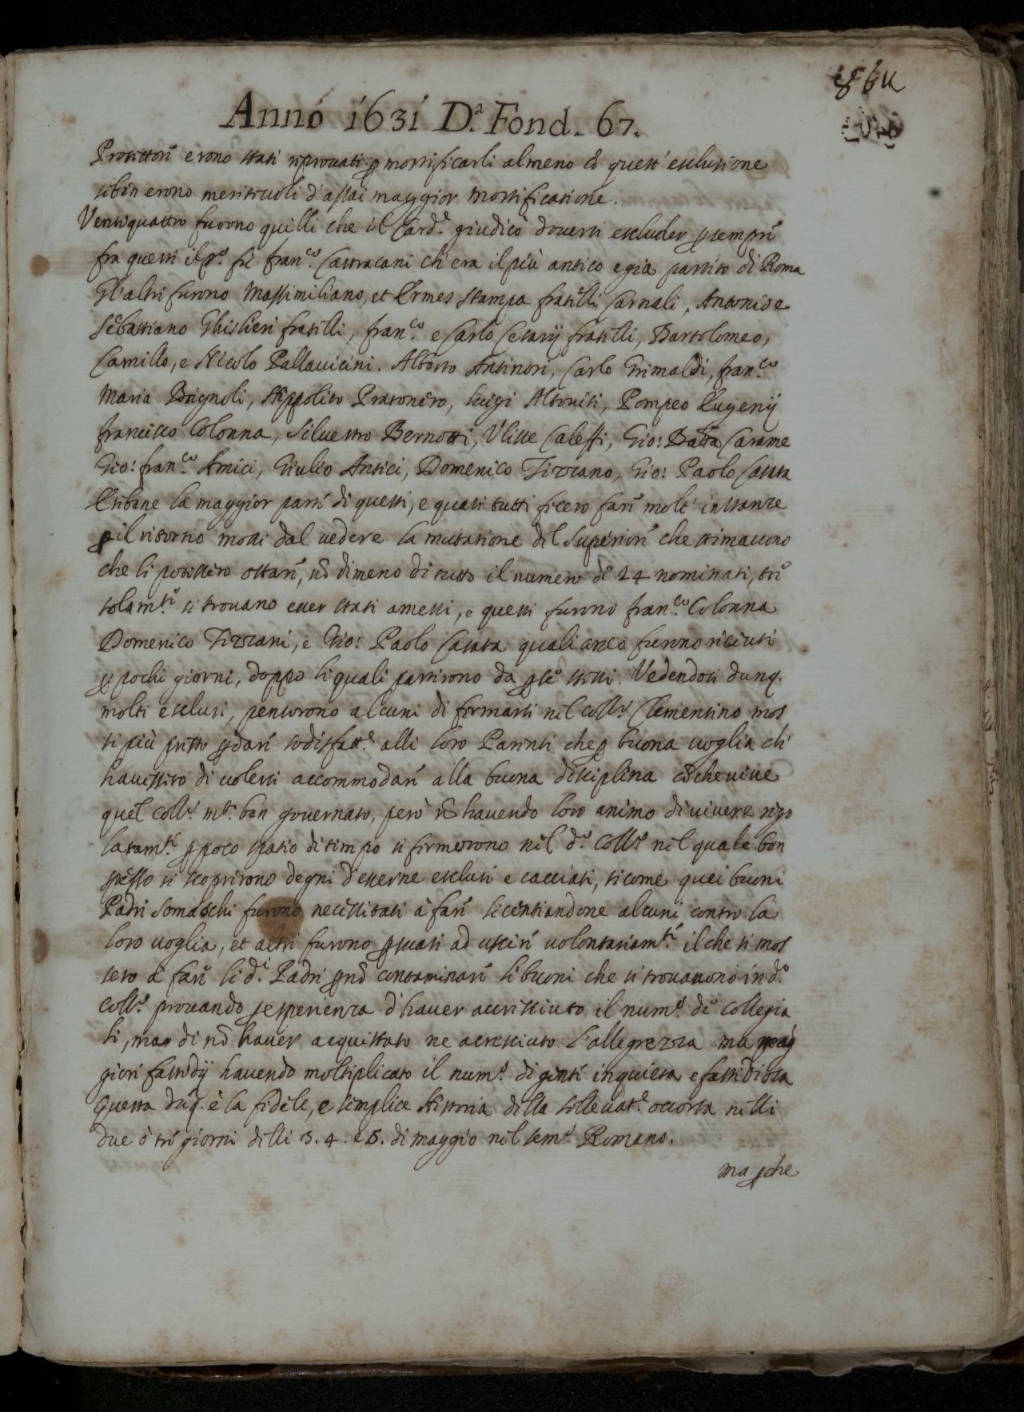 Anno 1631 D.ª Fond. 67.
Protettori erono stati riprovati p mortificarli almeno cõ quest' esclusione
sibẽn erono meritevoli d'assai maggior mortificatione.
Ventiquattro furono quelli che il Card.e giudicò doversi escluder p sempre
fra questi il p.o fù fran.co Castracani ch'era il più antico e già partito di Roma
Gl'altri furono Massimiliano, et Ermes Stampa fratelli Carnali, Antonio e
Sebastiano Ghislieri fratelli, fran.co e Carlo Cesarij fratelli, Bartolomeo,
Camillo, e Nicolo Pallavicini. Alberto Antinori, Carlo Grimaldi, fran.co
Maria Brignoli, Hippolito Pratonero, Luigi Altoviti, Pompeo Eugenij
francisco Colonna, Silvestro Bernotti, Ulisse Caleffi, Gio: Batta Carame
Gio: fran.co Amici, Giulio Antici, Domenico Tizzano, Gio: Paolo Casata
Essibene la maggior parte di questi, e quasi tutti ficero fare molte instanze
p il ritorno mossi dal vedere la mutatione del Superiore che stimavono
che li potessero ottare, nõ dimeno di tutto il numero de 24 nominati, tre
solam.te si trovano esser stati amessi, e questi furono fran.co Colonna
Domenico Tizzani, e Gio: Paolo Casata quali anco furono riceuti
p pochi giorni, doppo li quali partirono da p se stessi. Vedendosi dunq.
molti esclusi, pensorono alcuni di fermarsi nel coll.o Clementino mos
si più presto p dare sodisfatt.e alli loro Parenti che p buona voglia ch'
havessero di volersi accommodare alla buona disciplina cõ che vive
quel coll.o m.o ben governato, però nõ havendo loro animo di vivere rego
latam.te p poco spatio di tempo si fermorono nel d.o coll.o nel quale ben
spesso si scoprirono degni d'esserne esclusi e cacciati, sicome quei buoni
Padri Somaschi furono necessitati à fare licentiandone alcuni contro la
loro voglia, et altri furono p suasi ad uscire volontariam.te il che si mos
sero à fare li d.i Padri p nõ contaminare li buoni che si trovavono in d.o
coll.o provando p esperienza d'haver accresciuto il num.o de collegia
li, ma di nõ haver acquistato ne accresciuto l'allegrezza ma mag
giori fastidij havendo moltiplicato il num.o di gente inquieta e fastidiosa
Questa dũq. è la fidele, e semplice Historia della sollevat.e occorsa nelli
due ò tre giorni delli 3. 4. e 5. di maggio nel sem.o Romano.
ma p che